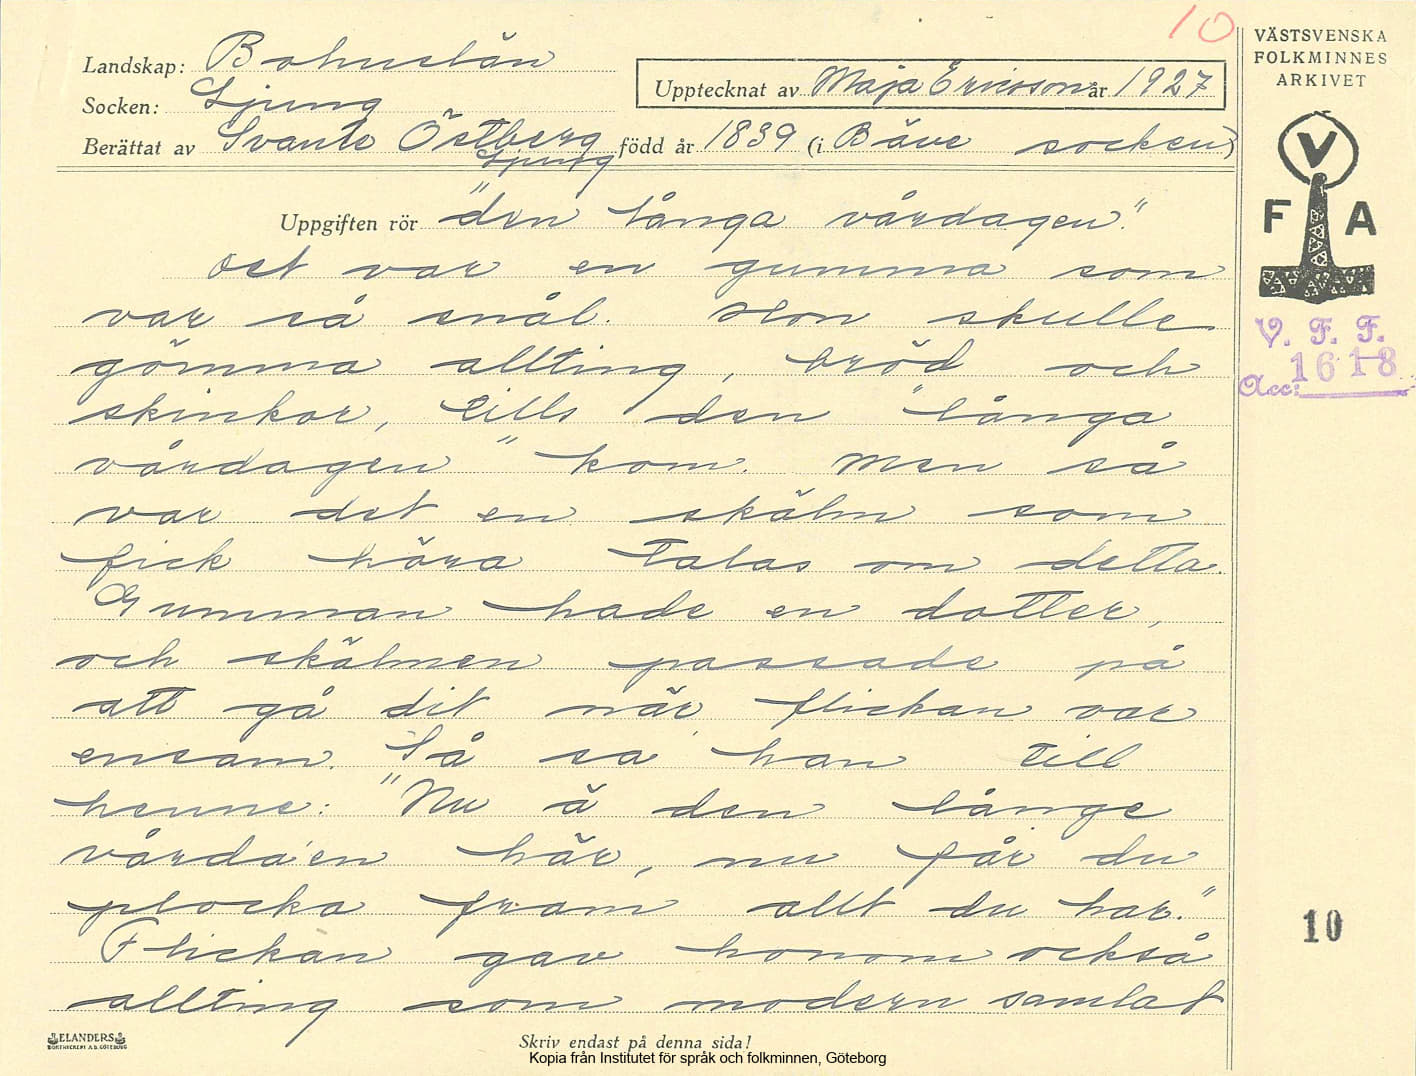 10
Landskap: Bohuslän
Socken: Ljung
Upptecknat av Maja Ericson år 1927
Berättat av Svante Östberg född år 1839 (i Bäve socken)
Ljung
Uppgiften rör "den långa vårdagen".
Det var en gumma som
var så snål. Hon skulle
gömma allting, bröd och
skinkor, tills den "långa
vårdagen" kom. Men så
var det en skälm som
fick höra talas om detta.
Gumman hade en dotter,
och skälmen passade på
att gå dit när flickan var
ensam. Så sa han till
henne: "Nu ä den långe
vårda'en här, nu får du
plocka fram allt du har."
Flickan gav honom också
allting som modern samlat
ELANDERS
BOKTRYCKERI A.B. GÖTEBORG
Skriv endast på denna sida!
Kopia från Institutet för språk och folkminnen, Göteborg
VÄSTSVENSKA
FOLKMINNES
ARKIVET
V
F A
V. F. F.
Acc: 1618
10